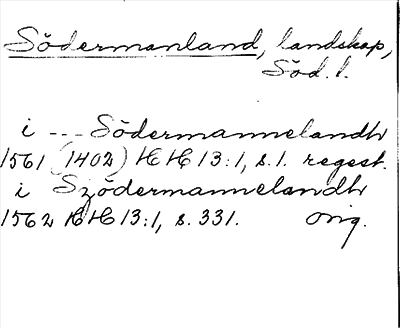 Södermanland, landskap,
Söd. l.
i --- Södermannelandh
1561 (1402) HH 13:1, s. 1. regest.
i Szödermannelandh
1562 HH 13:1, s. 331. Orig.